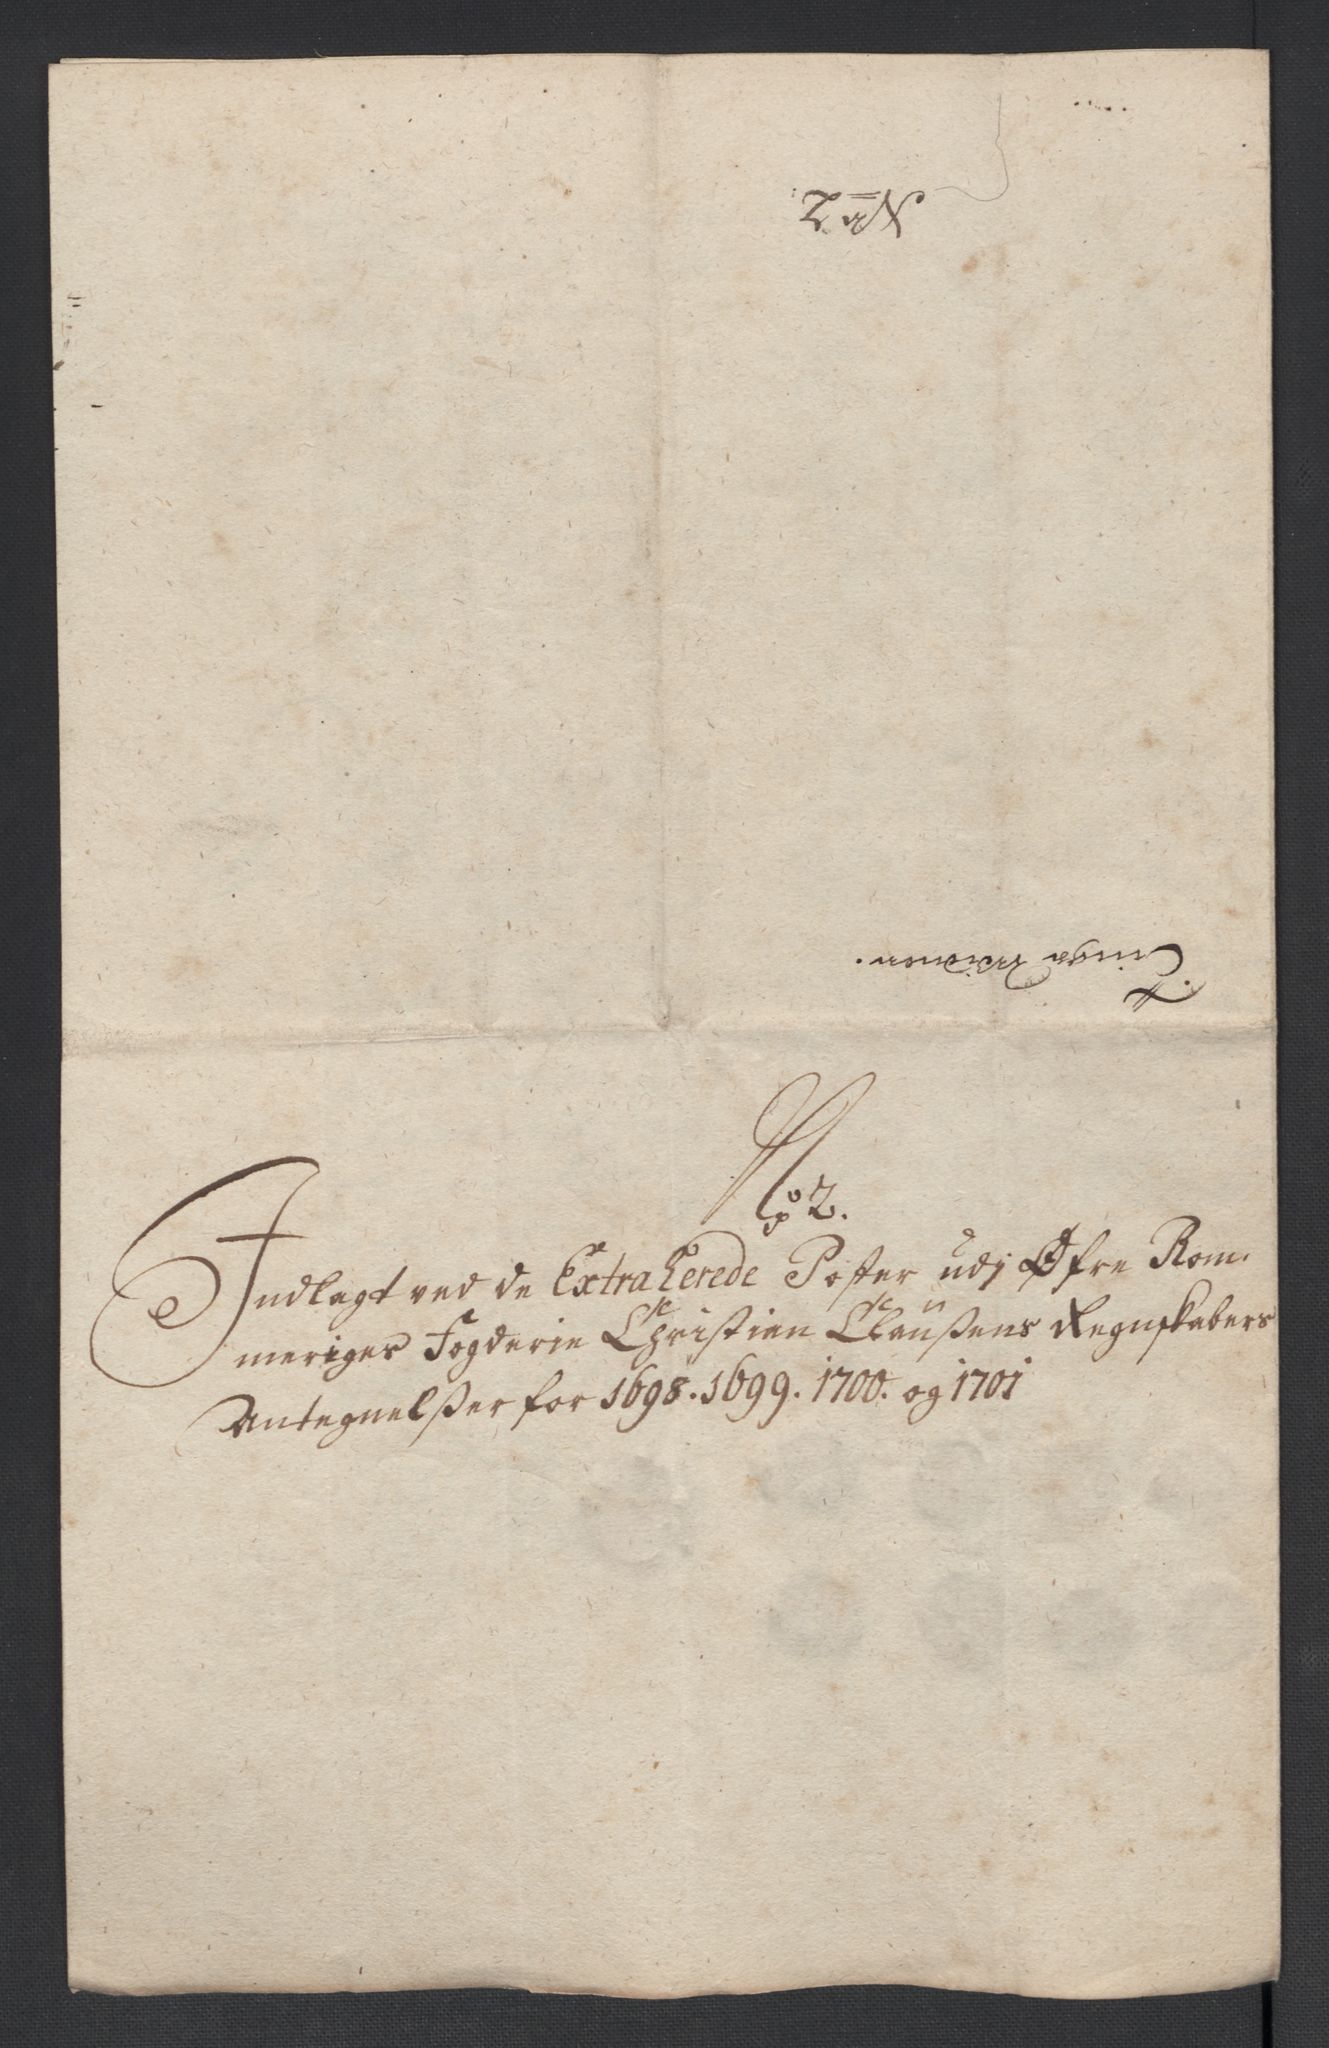 Nr 2.
No 2.
Indlagt ved de Extraherede Poster udj Øfre Rom-
meriges Fogderie Sr Christian Claußens Regnskabers
Antegnelßer for 1698. 1699. 1700. og 1701